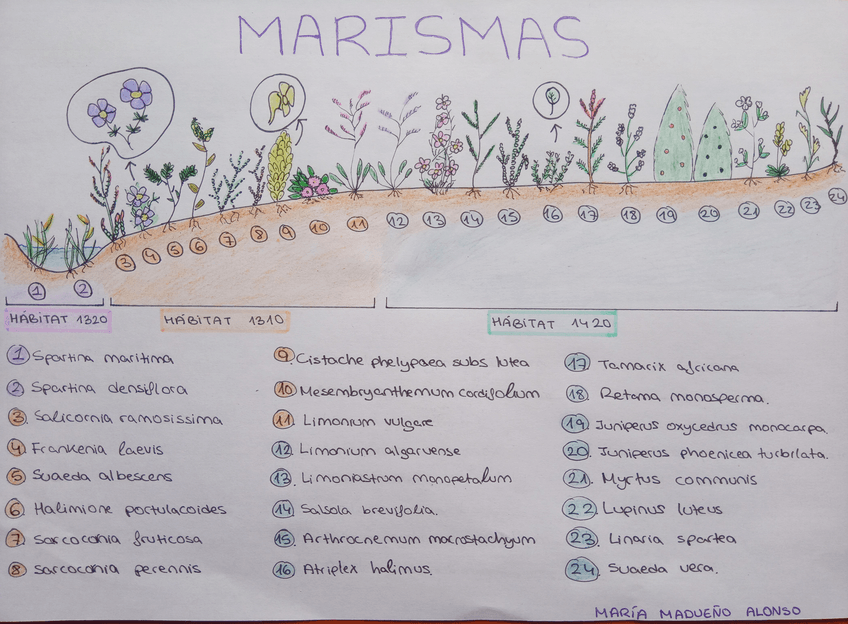 MARISMAS
1 2 3 4 5 6 7 8 9 10 11 12 13 14 15 16 17 18 19 20 21 22 23 24
HÁBITAT 1320
HÁBITAT 1310
HÁBITAT 1420
1 Spartina maritima
2 Spartina densiflora
3 Salicornia ramosissima
4 Frankenia laevis
5 Suaeda albescens
6 Halimione portulacoides
7 Sarcocornia fruticosa
8 Sarcoconia perennis
9 Cistache phelypaea subs lutea
10 Mesembryanthemum cordifolium
11 Limonium vulgare
12 Limonium algarvense
13. Limoniastrum monopetalum
14 Salsola brevifolia.
15 Arthrocnemum macrostachyum
16 Atriplex halimus.
17 Tamarix africana
18. Retama monosperma.
19. Juniperus oxycedrus monocarpa.
20. Juniperus phoenicea turbilata.
21. Myrtus communis
22 Lupinus luteus
23. Linaria spartea
24. Suaeda vera.
MARÍA MADUEÑO ALONSO